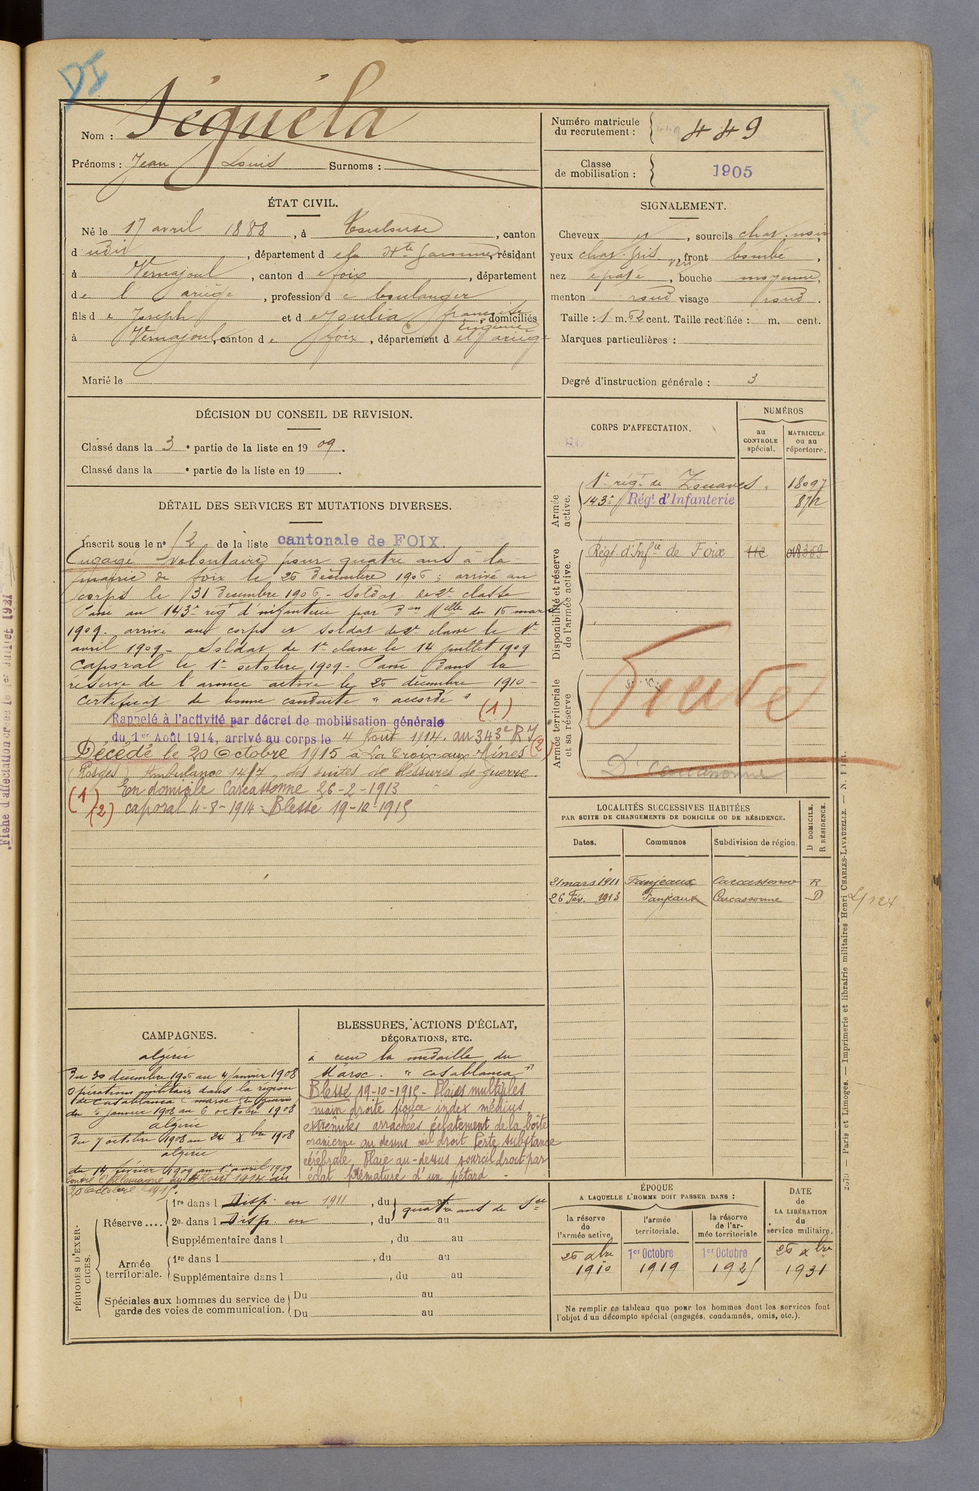 DI
Nom : Séguéla
Prénoms : Jean Louis Surnoms :
Numéro matricule du recrutement : 449
Classe de mobilisation : 1905
ÉTAT CIVIL.
Né le 17 avril 1888, à Toulouse, canton
dudit, département de la Hte Garonne, résidant
à Vernajoul, canton de foix, département
de l'ariège, profession de boulanger
fils de Joseph et de Julia françoise Eugénie, domiciliés
à Vernajoul, canton de foix, département de l'ariège
Marié le
SIGNALEMENT.
Cheveux et, sourcils chat. noir,
yeux chat. gris vert, front bombé,
nez épaté, bouche moyenne,
menton rond visage rond.
Taille : 1 m. 62 cent. Taille rectifiée : m. cent.
Marques particulières :
Degré d'instruction générale : 3
DÉCISION DU CONSEIL DE REVISION.
Classé dans la 3e partie de la liste en 1909.
Classé dans la e partie de la liste en 19 .
DÉTAIL DES SERVICES ET MUTATIONS DIVERSES.
Inscrit sous le no 12 de la liste cantonale de FOIX.
Engagé volontaire pour quatre ans à la
mairie de foix le 26 décembre 1906; arrivé au
corps le 31 décembre 1906 - Soldat de 2e classe
Passé au 143e régt d'infanterie par Don Mlle du 16 mars
1909. arrivé aux corps et soldat de 2e classe le 1er
avril 1909 - Soldat de 1re classe le 14 juillet 1909
Caporal le 1er octobre 1909 - Passé dans la
réserve de l'armée active le 26 décembre 1910 -
certificat de bonne conduite "accordé"
(1)
Rappelé à l'activité par décret de mobilisation générale
du 1er Août 1914, arrivé au corps le 4 Aout 1914. au 343e RI (2)
Décédé le 20 Octobre 1915 à La Croix aux Mines
(Vosges) Ambulance 14/7, des suites de blessures de guerre.
(1) En domicile Carcassonne 26-2-1913
(2) caporal 4-8-1914 - Blessé 19-10-1915
CORPS D'AFFECTATION.
NUMÉROS
au CONTROLE spécial.
MATRICULE ou au répertoire.
Armée active.
1er régt de Zouaves. 18097
143e Régt d'Infanterie 872
Disponibilité et réserve de l'armée active.
Régt d'Infie de Foix
Armée territoriale et sa réserve
D. Carcassonne
LOCALITÉS SUCCESSIVES HABITÉES
PAR SUITE DE CHANGEMENTS DE DOMICILE OU DE RÉSIDENCE.
D DOMICILE. R RÉSIDENCE.
Dates. Communes Subdivision de région.
21 mars 1911 Fanjeaux Carcassonne R
26 Fév. 1913 Fanjeaux Carcassonne D
CAMPAGNES.
algérie
Du 30 décembre 1906 au 4 janvier 1908
Opérations militaires dans la région
de Casablanca (maroc) en guerre
du 5 janvier 1908 au 6 octobre 1908
algérie
Du 7 octobre 1908 au 24 Xbre 1908
algérie
du 14 février 1909 au 1er avril 1909
Contre l'Allemagne du 4 Aout 1914 au
20 Octobre 1915.
BLESSURES, ACTIONS D'ÉCLAT,
DÉCORATIONS, ETC.
a reçu la médaille du
Maroc. "casablanca"
Blessé 19-10-1915 - Plaies multiples
main droite pouce index médius
extrémités arrachées éclatement de la boîte
cranienne au dessus œil droit Perte substance
cérébrale. Plaie au-dessus sourcil droit par
éclat prématuré d'un pétard
PÉRIODES D'EXERCICES.
Réserve....
1re dans l Disp. en 1911, du quatre ans de Sce
2e dans l Disp. en, du au
Supplémentaire dans l , du au
Armée territoriale.
1re dans l , du au
Supplémentaire dans l , du au
Spéciales aux hommes du service de garde des voies de communication.
Du au
Du au
ÉPOQUE
A LAQUELLE L'HOMME DOIT PASSER DANS :
la réserve de l'armée active.
l'armée territoriale.
la réserve de l'armée territoriale
DATE de LA LIBÉRATION du service militaire.
26 Xbre 1910
1er Octobre 1919
1er Octobre 1925
26 Xbre 1931
Ne remplir ce tableau que pour les hommes dont les services font
l'objet d'un décompte spécial (engagés, condamnés, omis, etc.).
— Paris et Limoges. — Imprimerie et librairie militaires Henri CHARLES-LAVAUZELLE. —